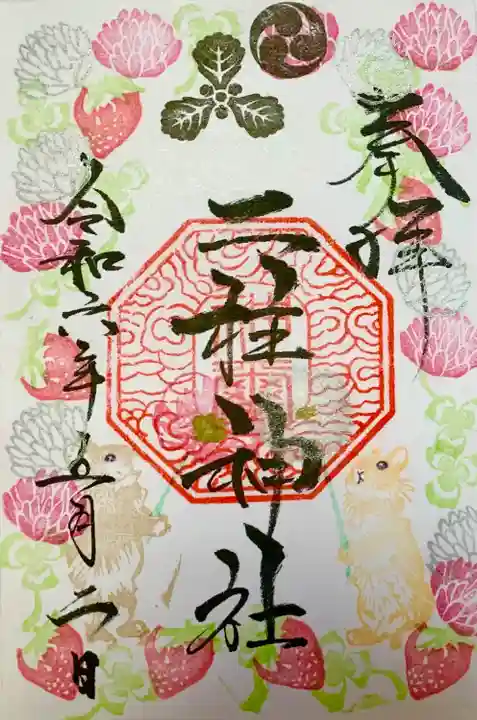 奉拝
二柱神社
令和六年五月二日